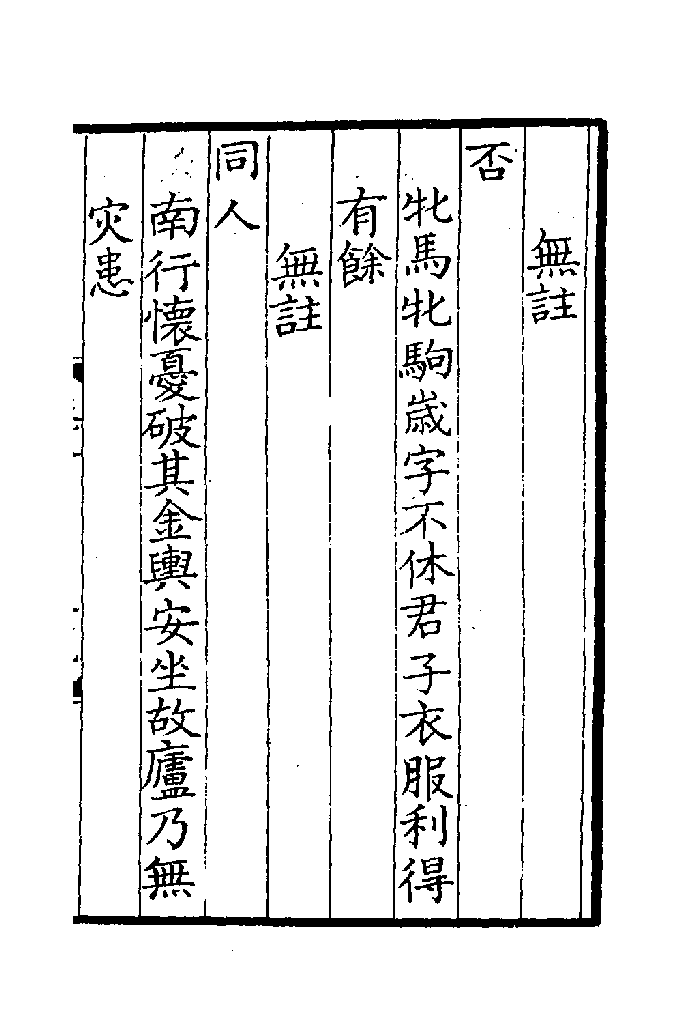 無註
否
牝馬牝駒歳字不休君子衣服利得
有餘
無註
同人
南行懷憂破其金輿安坐故廬乃無
灾患